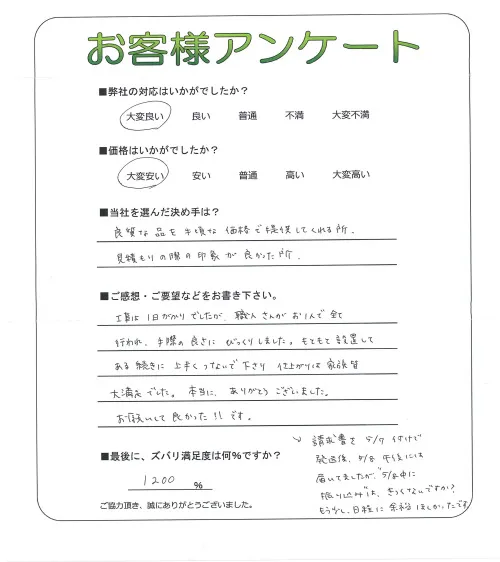 お客様アンケート
■弊社の対応はいかがでしたか？
大変良い 良い 普通 不満 大変不満
■価格はいかがでしたか？
大変安い 安い 普通 高い 大変高い
■当社を選んだ決め手は？
良質な品を手頃な価格で提供してくれる所.
見積もりの際の印象が良かった所.
■ご感想・ご要望などをお書き下さい。
工事は1日がかりでしたが、職人さんがお1人で全て
行われ、手際の良さにびっくりしました。もともと設置して
ある続きに上手くつないで下さり 仕上がりは家族皆
大満足でした。本当に、ありがとうございました。
お願いして良かった!!です。
■最後に、ズバリ満足度は何％ですか？
1200 ％
ご協力頂き、誠にありがとうございました。
請求書を5/7付けで
発送後、5/8午後には
届いてましたが、5/8中に
振り込みは、きつくないですか?
もう少し、日程に余裕ほしかったです